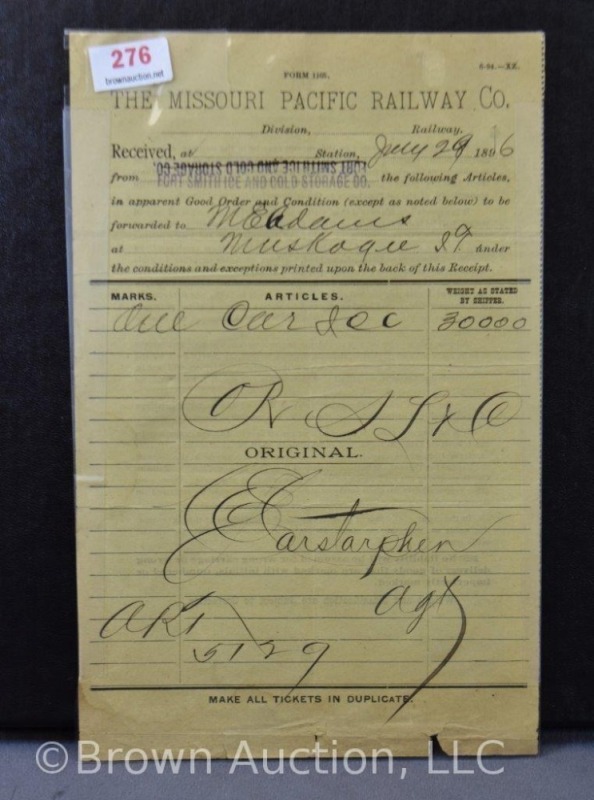 276
brownauction.net
FORM 1103.
6-94.—XX.
THE MISSOURI PACIFIC RAILWAY CO.
Division, Railway.
Received, at Station, July 29 1896
FORT SMITH ICE AND COLD STORAGE CO.
from FORT SMITH ICE AND COLD STORAGE CO. the following Articles,
in apparent Good Order and Condition (except as noted below) to be
forwarded to M E Adams
at Muskogee IT under
the conditions and exceptions printed upon the back of this Receipt.
MARKS. ARTICLES. WEIGHT AS STATED BY SHIPPER.
One Car Ice 30000
O R S L & C
ORIGINAL.
E Carstarphen
Agt
ART
5129
MAKE ALL TICKETS IN DUPLICATE.
© Brown Auction, LLC